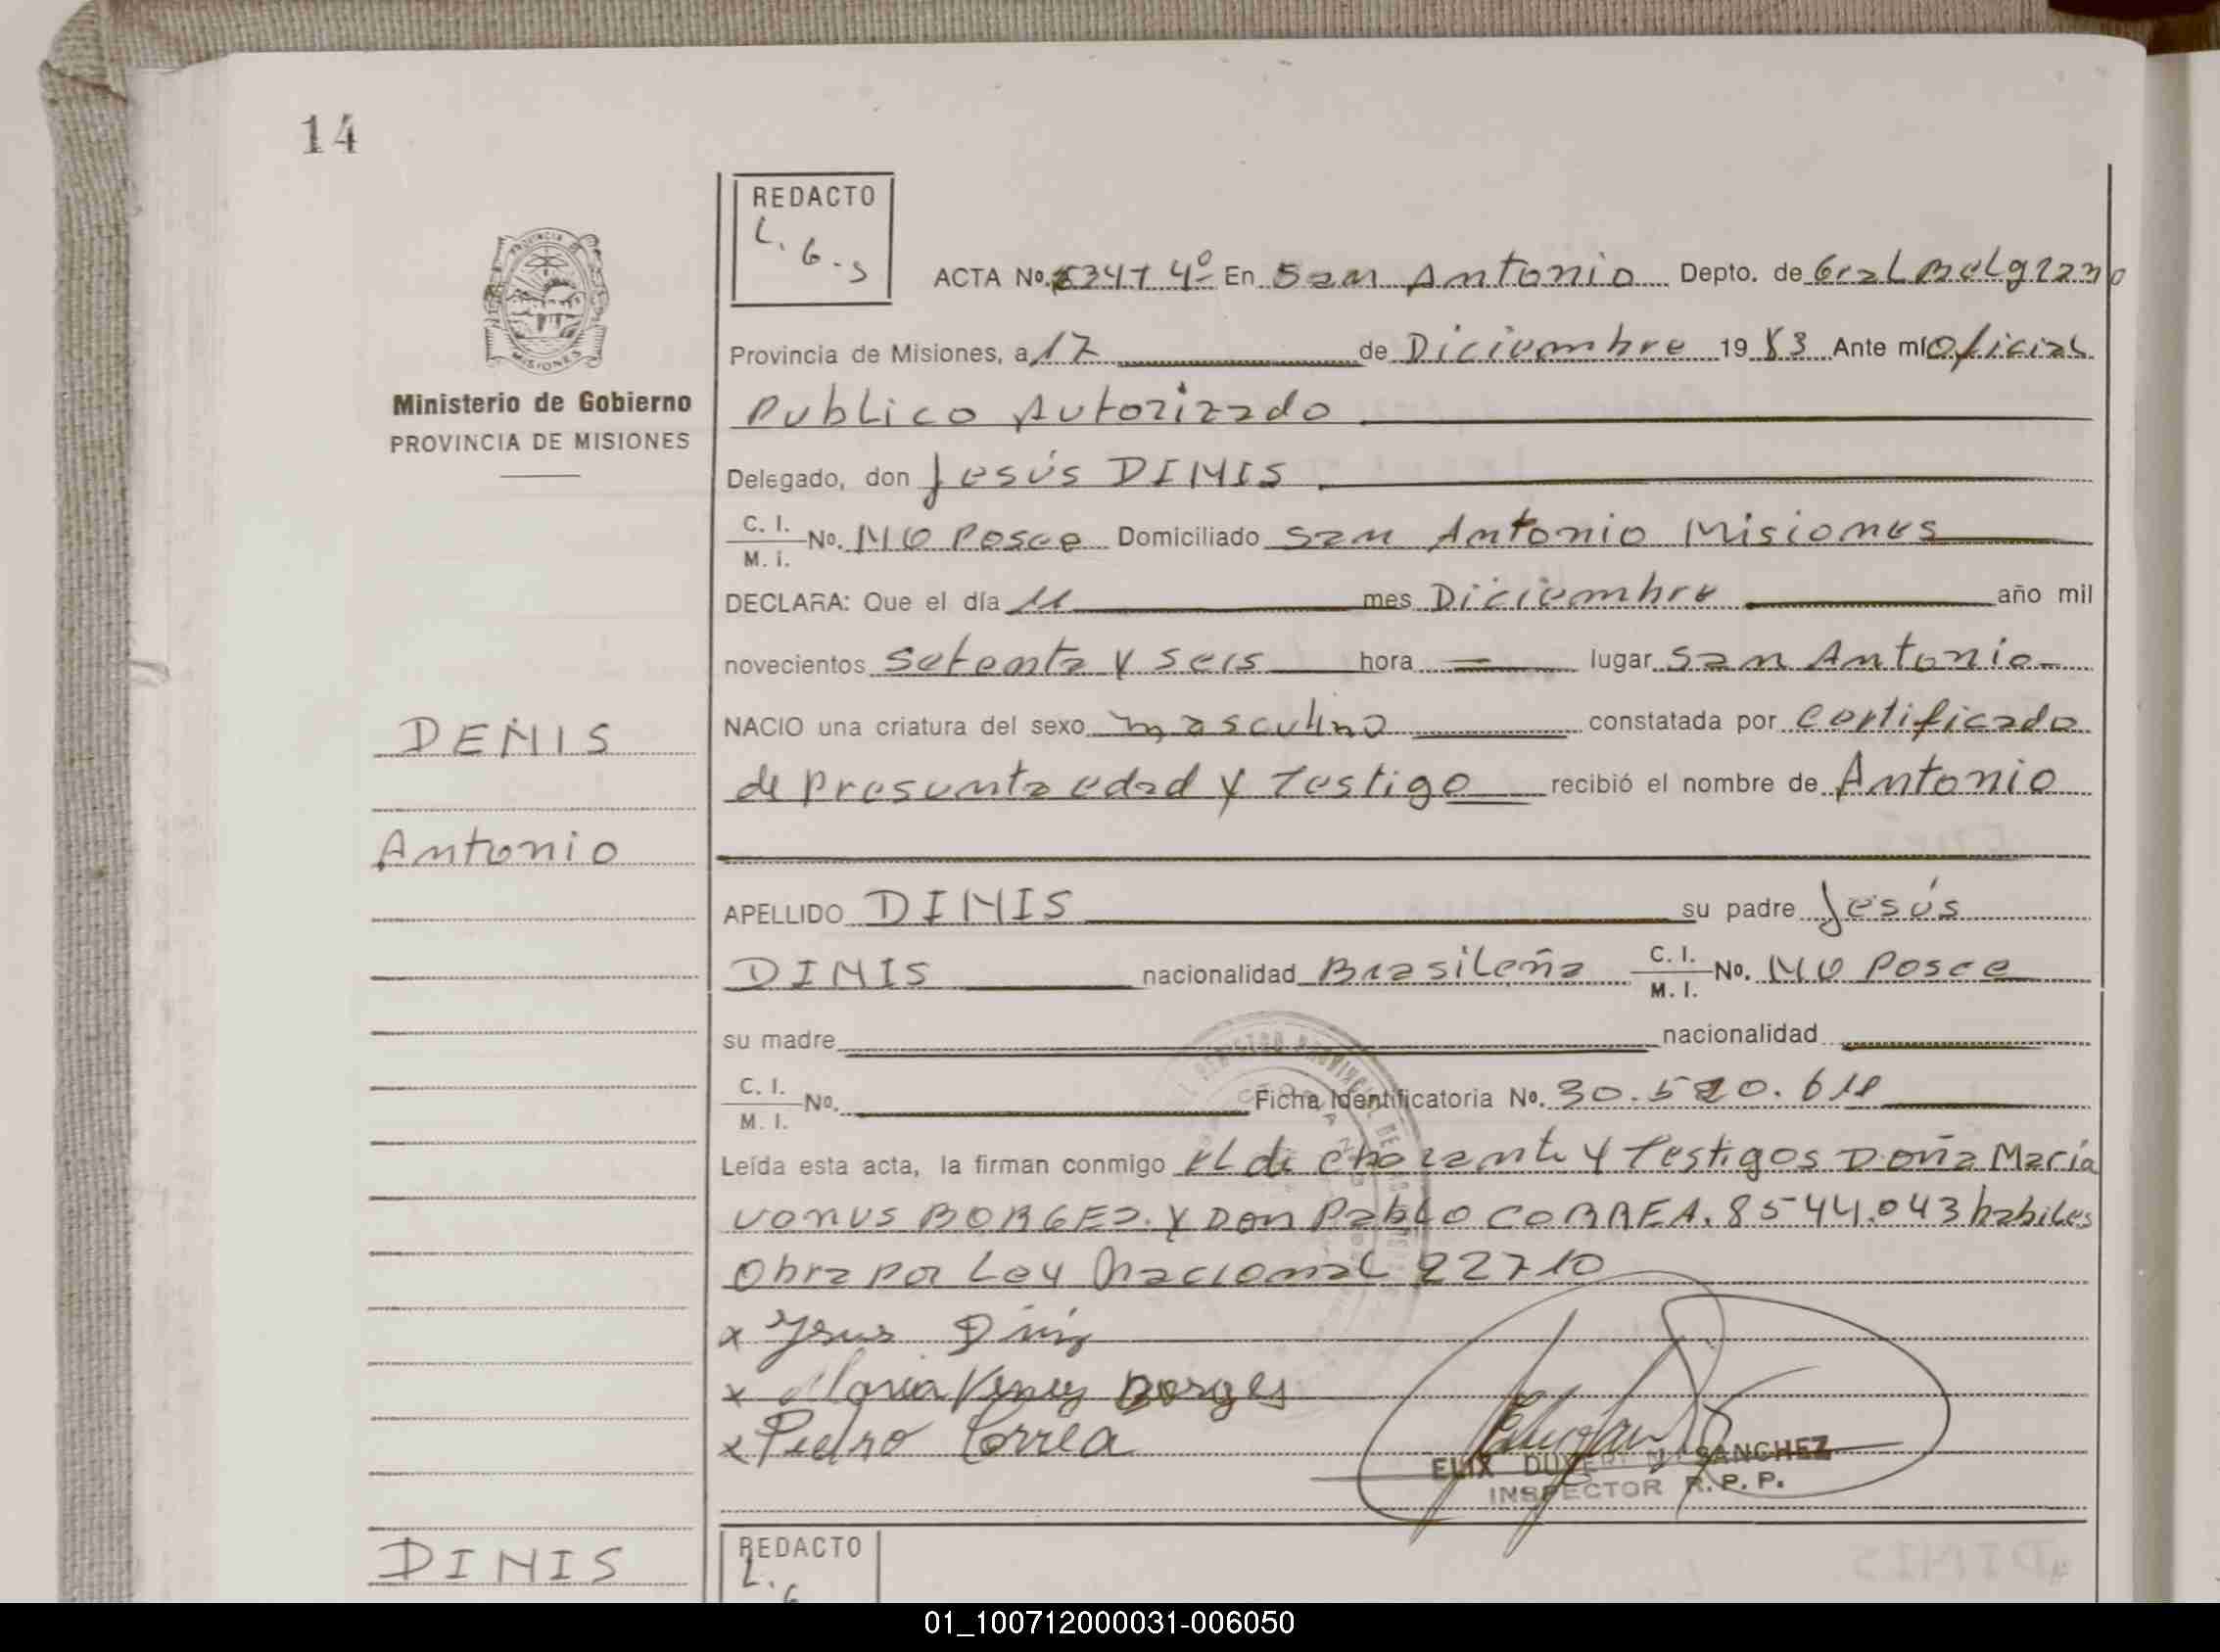 14
REDACTO
L. G. S
ACTA No. 4º En San Antonio Depto. de Gral Belgrano
Provincia de Misiones, a 17 de Diciembre 1983 Ante mí Oficial
Publico Autorizado
Ministerio de Gobierno
PROVINCIA DE MISIONES
Delegado, don Jesús DINIS
C. I. No. NO Posee Domiciliado San Antonio Misiones
M. I.
DECLARA: Que el día 11 mes Diciembre año mil
novecientos Setenta y seis hora lugar San Antonio
NACIO una criatura del sexo masculino constatada por Certificado
DENIS
de Presunta edad y Testigo recibió el nombre de Antonio
Antonio
APELLIDO DINIS su padre Jesús
DINIS nacionalidad Brasileña C. I. No. NO Posee
M. I.
su madre nacionalidad
C. I. No. Ficha Identificatoria No.
M. I.
Leída esta acta, la firman conmigo El Testigos Doña María
BORGES. y Don Pablo CORREA. 8544.043 habiles
Obra por Ley Nacional 22710
x Jesus Diniz
x Maria Borges
x Pedro Correa
SANCHEZ
INSPECTOR R. P. P.
DINIS
REDACTO
L.
G
01_100712000031-006050